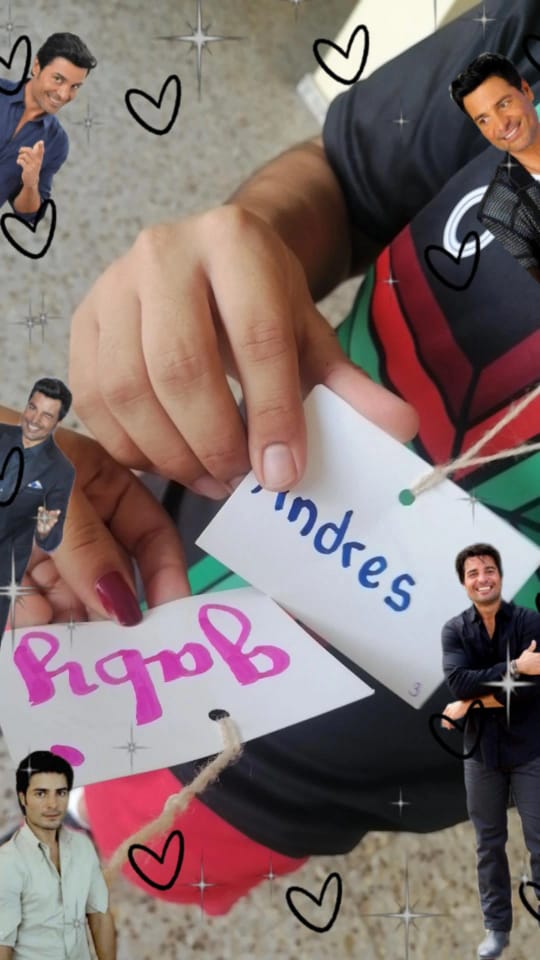 Andres
3
gaby